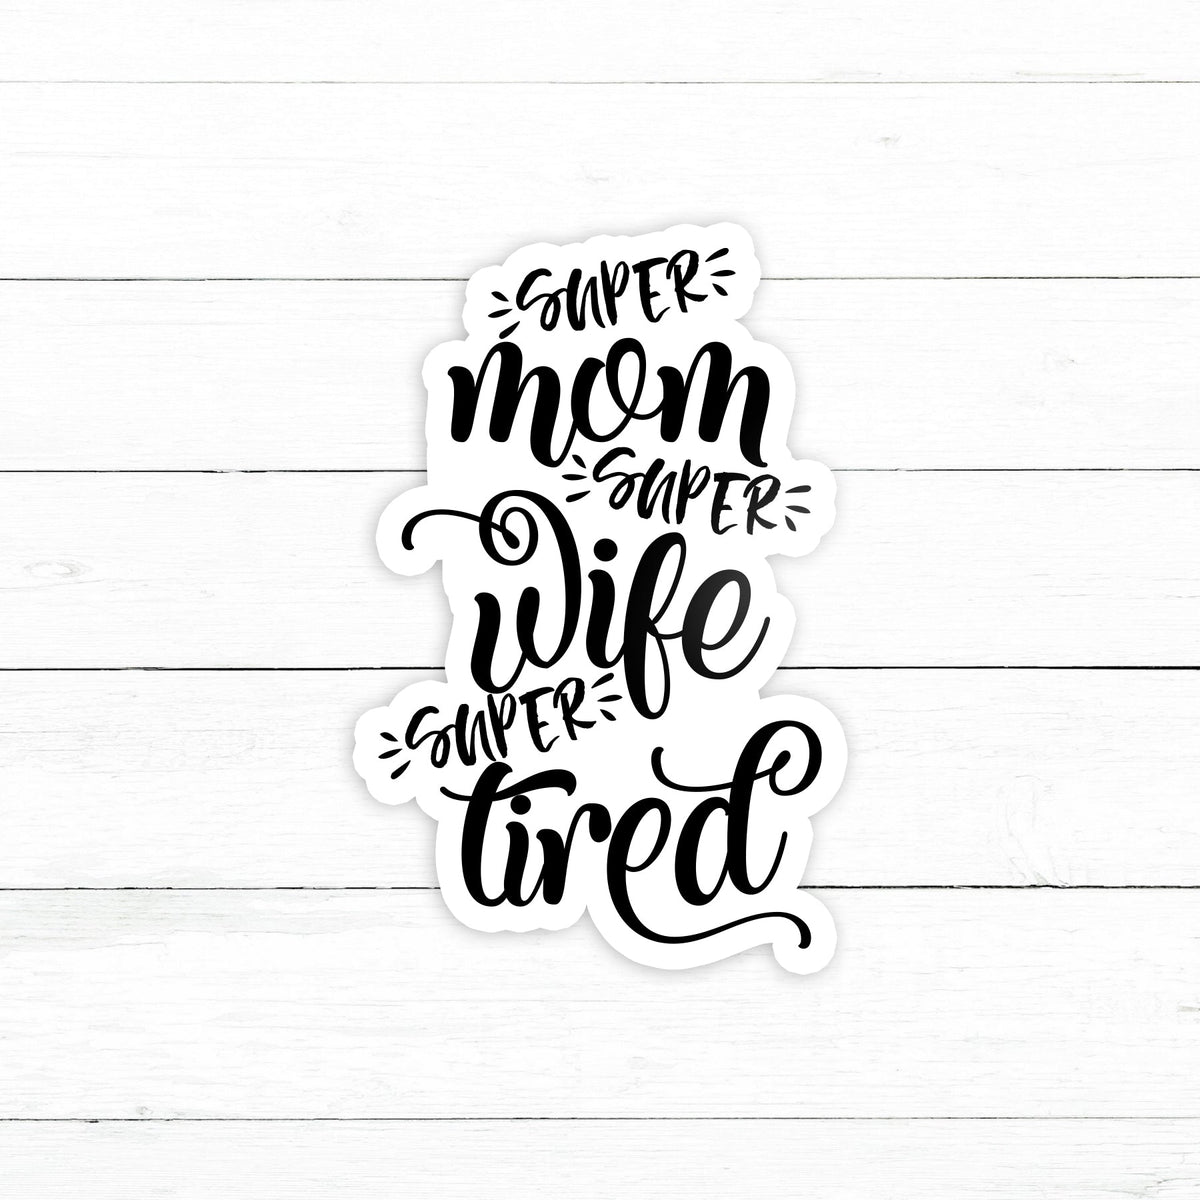 SUPER
mom
SUPER
Wife
SUPER
tired